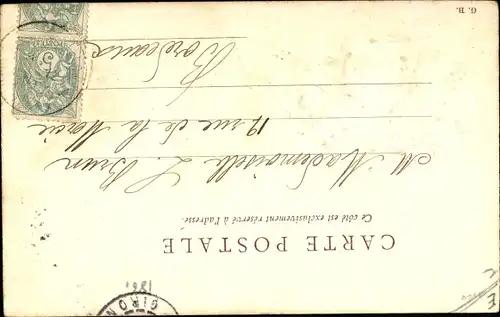 CARTE POSTALE
Ce côté est exclusivement réservé à l'adresse.
M Mademoiselle L. Brun
12 rue de la
Bordeaux
G. B.
5
POSTES
GIRON